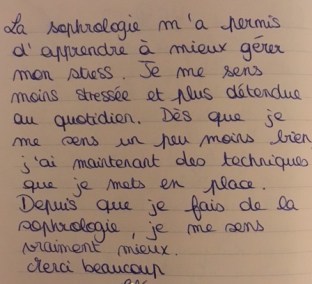 La sophrologie m'a permis
d'apprendre à mieux gérer
mon stress. Je me sens
moins stressée et plus détendue
au quotidien. Dès que je
me sens un peu moins bien
j'ai maintenant des techniques
que je mets en place.
Depuis que je fais de la
sophrologie, je me sens
vraiment mieux.
Merci beaucoup